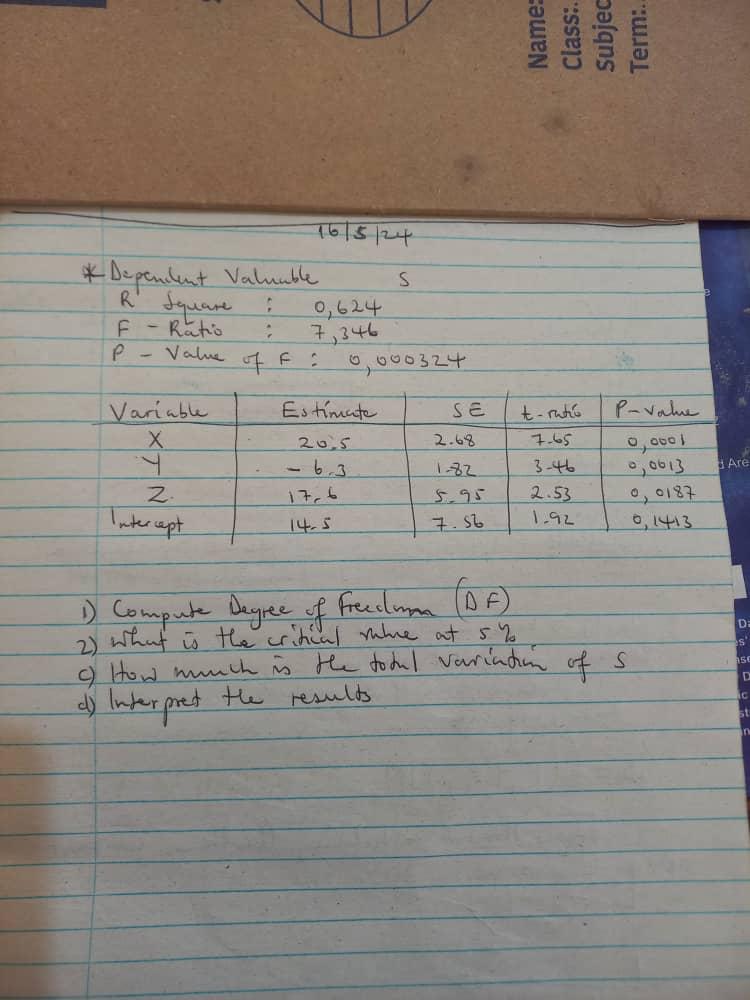 Name:
Class:.
Subjec
Term:.
16/5/24
* Dependent Valuable S
R Square : 0,624
F - Ratio : 7,346
P - Value of F : 0,000324
Variable Estimate SE t-ratio P-value
X 20.5 2.68 7.65 0,0001
Y - 6.3 1.82 3.46 0,0013
Z. 17.6 5.95 2.53 0,0187
Intercept 14.5 7.56 1.92 0,1413
1) Compute Degree of Freedom (DF)
2) What is the critical value at 5%
c) How much is the total variation of S
d) Interpret the results